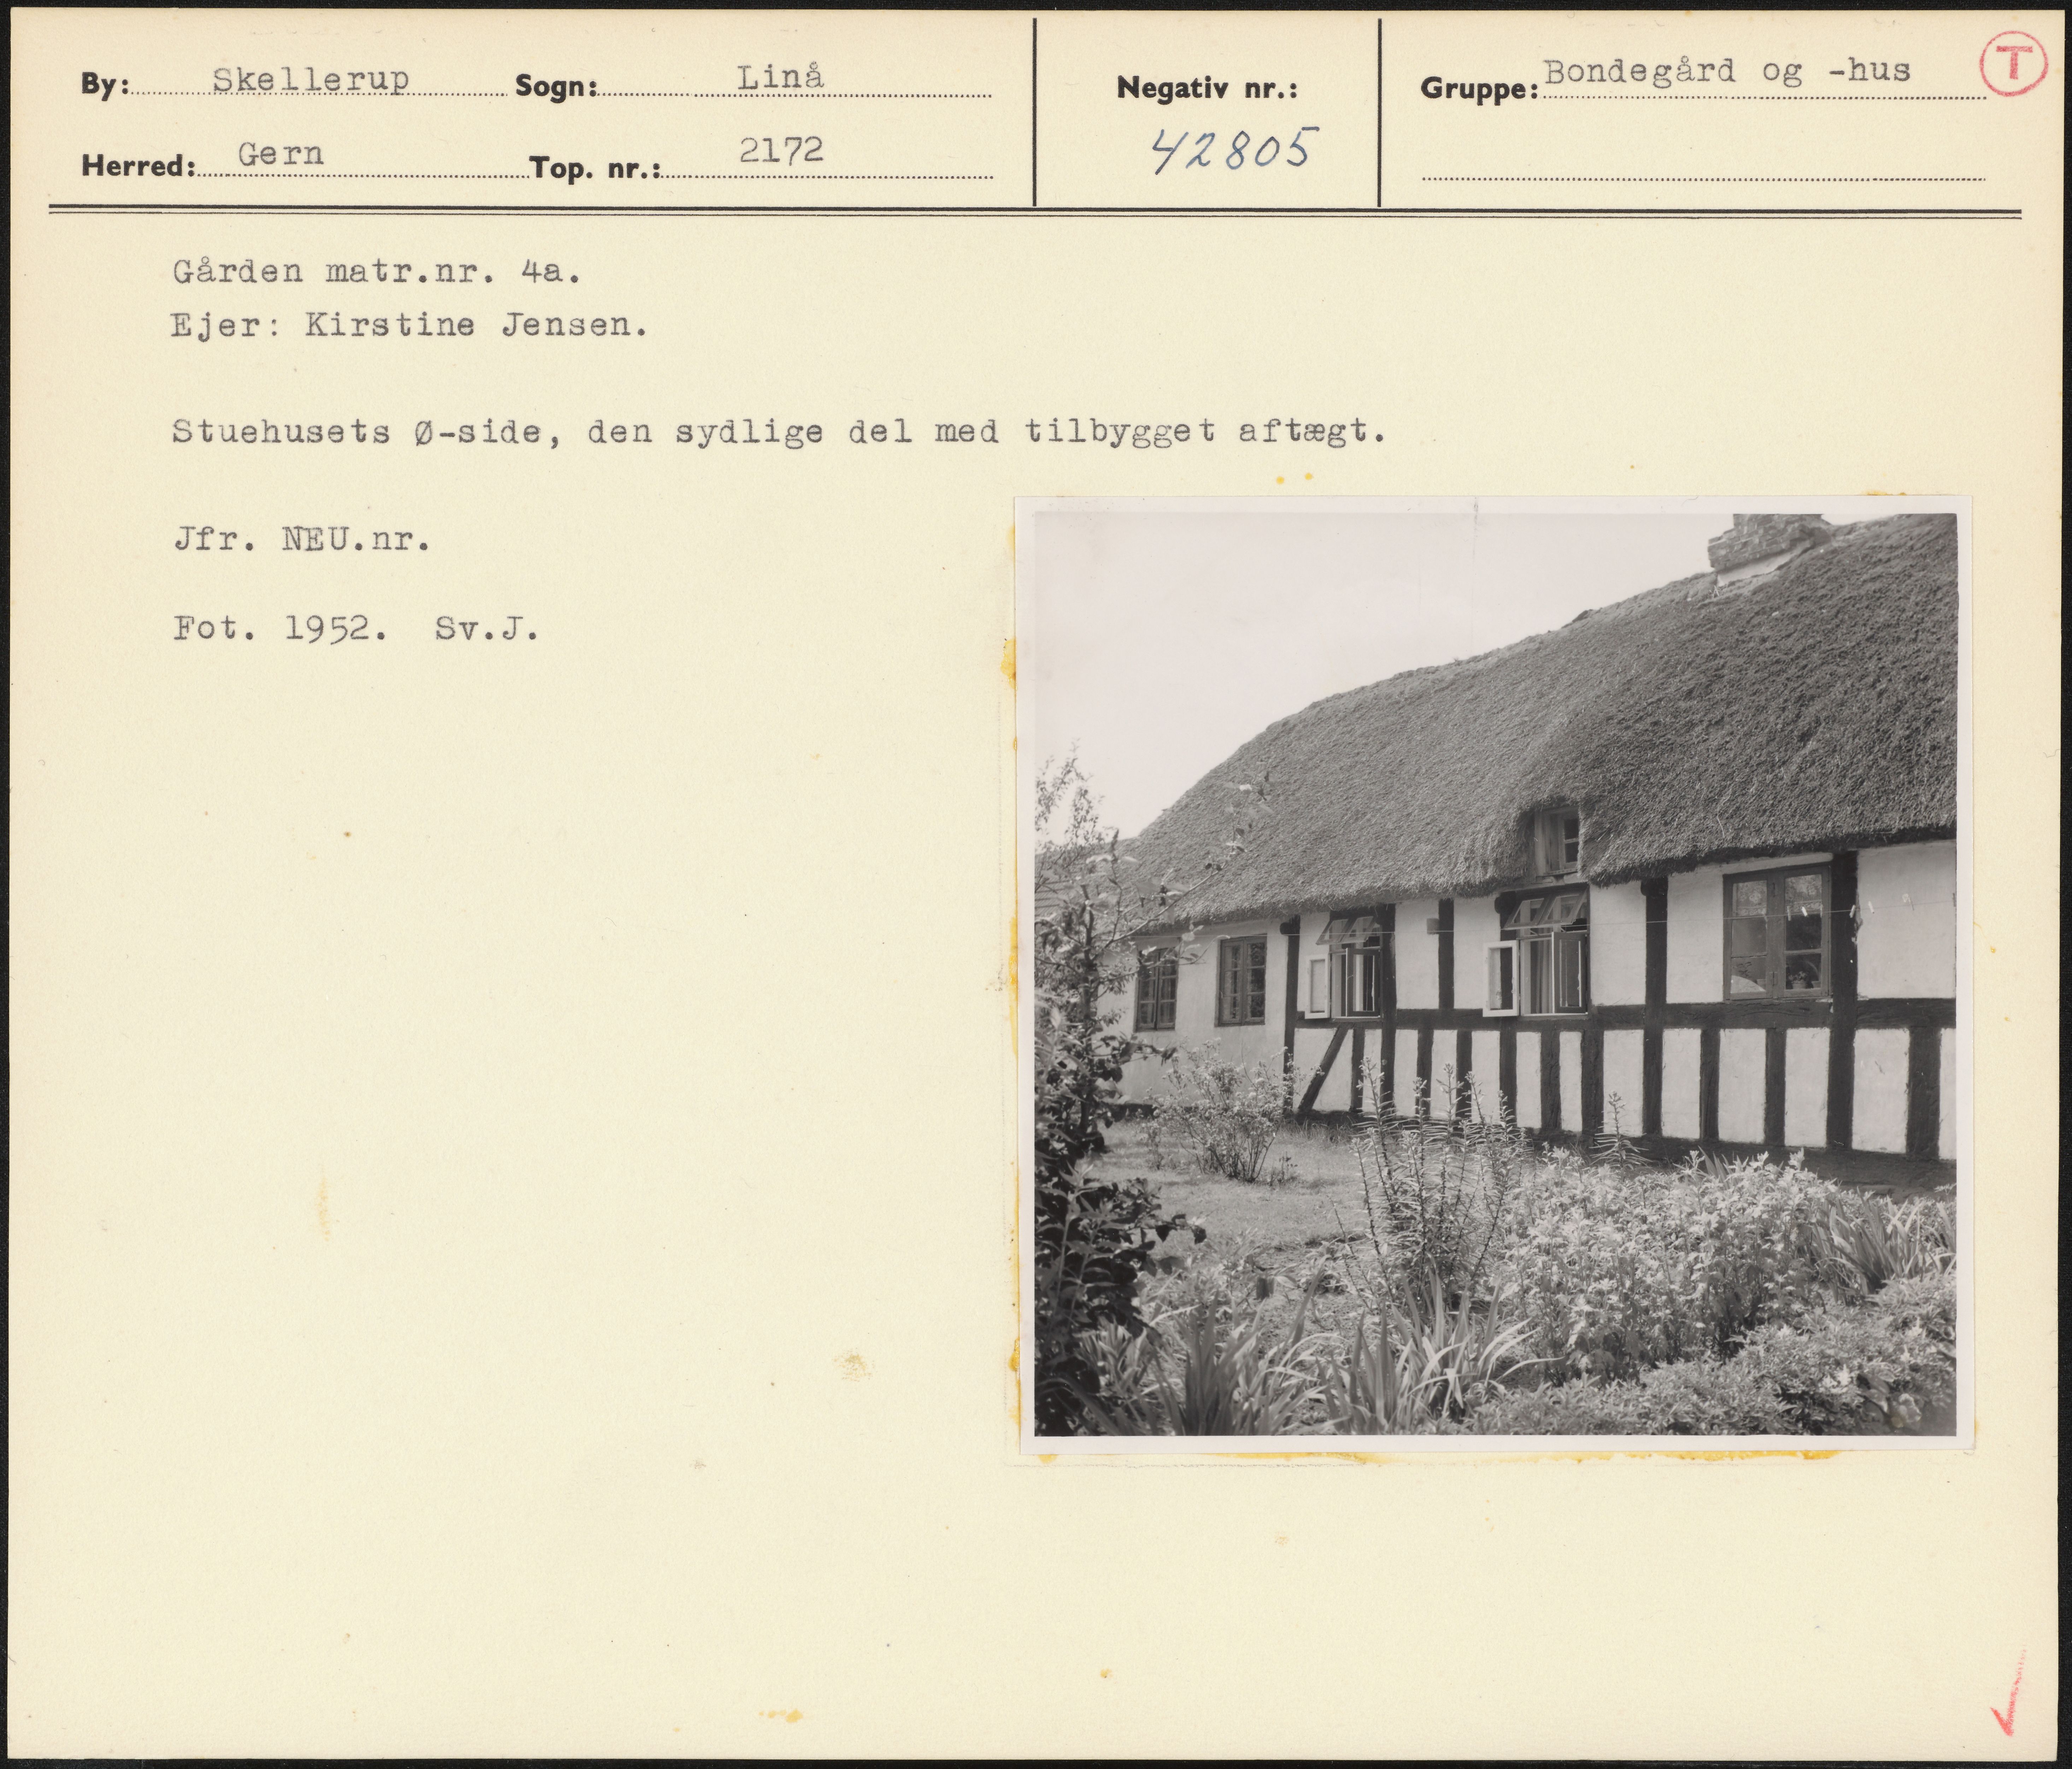 By: Skellerup Sogn: Linå
Herred: Gern Top. nr.: 2172
Negativ nr.:
42805
Gruppe: Bondegård og -hus
T
Gården matr.nr. 4a.
Ejer: Kirstine Jensen.
Stuehusets Ø-side, den sydlige del med tilbygget aftægt.
Jfr. NEU.nr.
Fot. 1952. Sv.J.